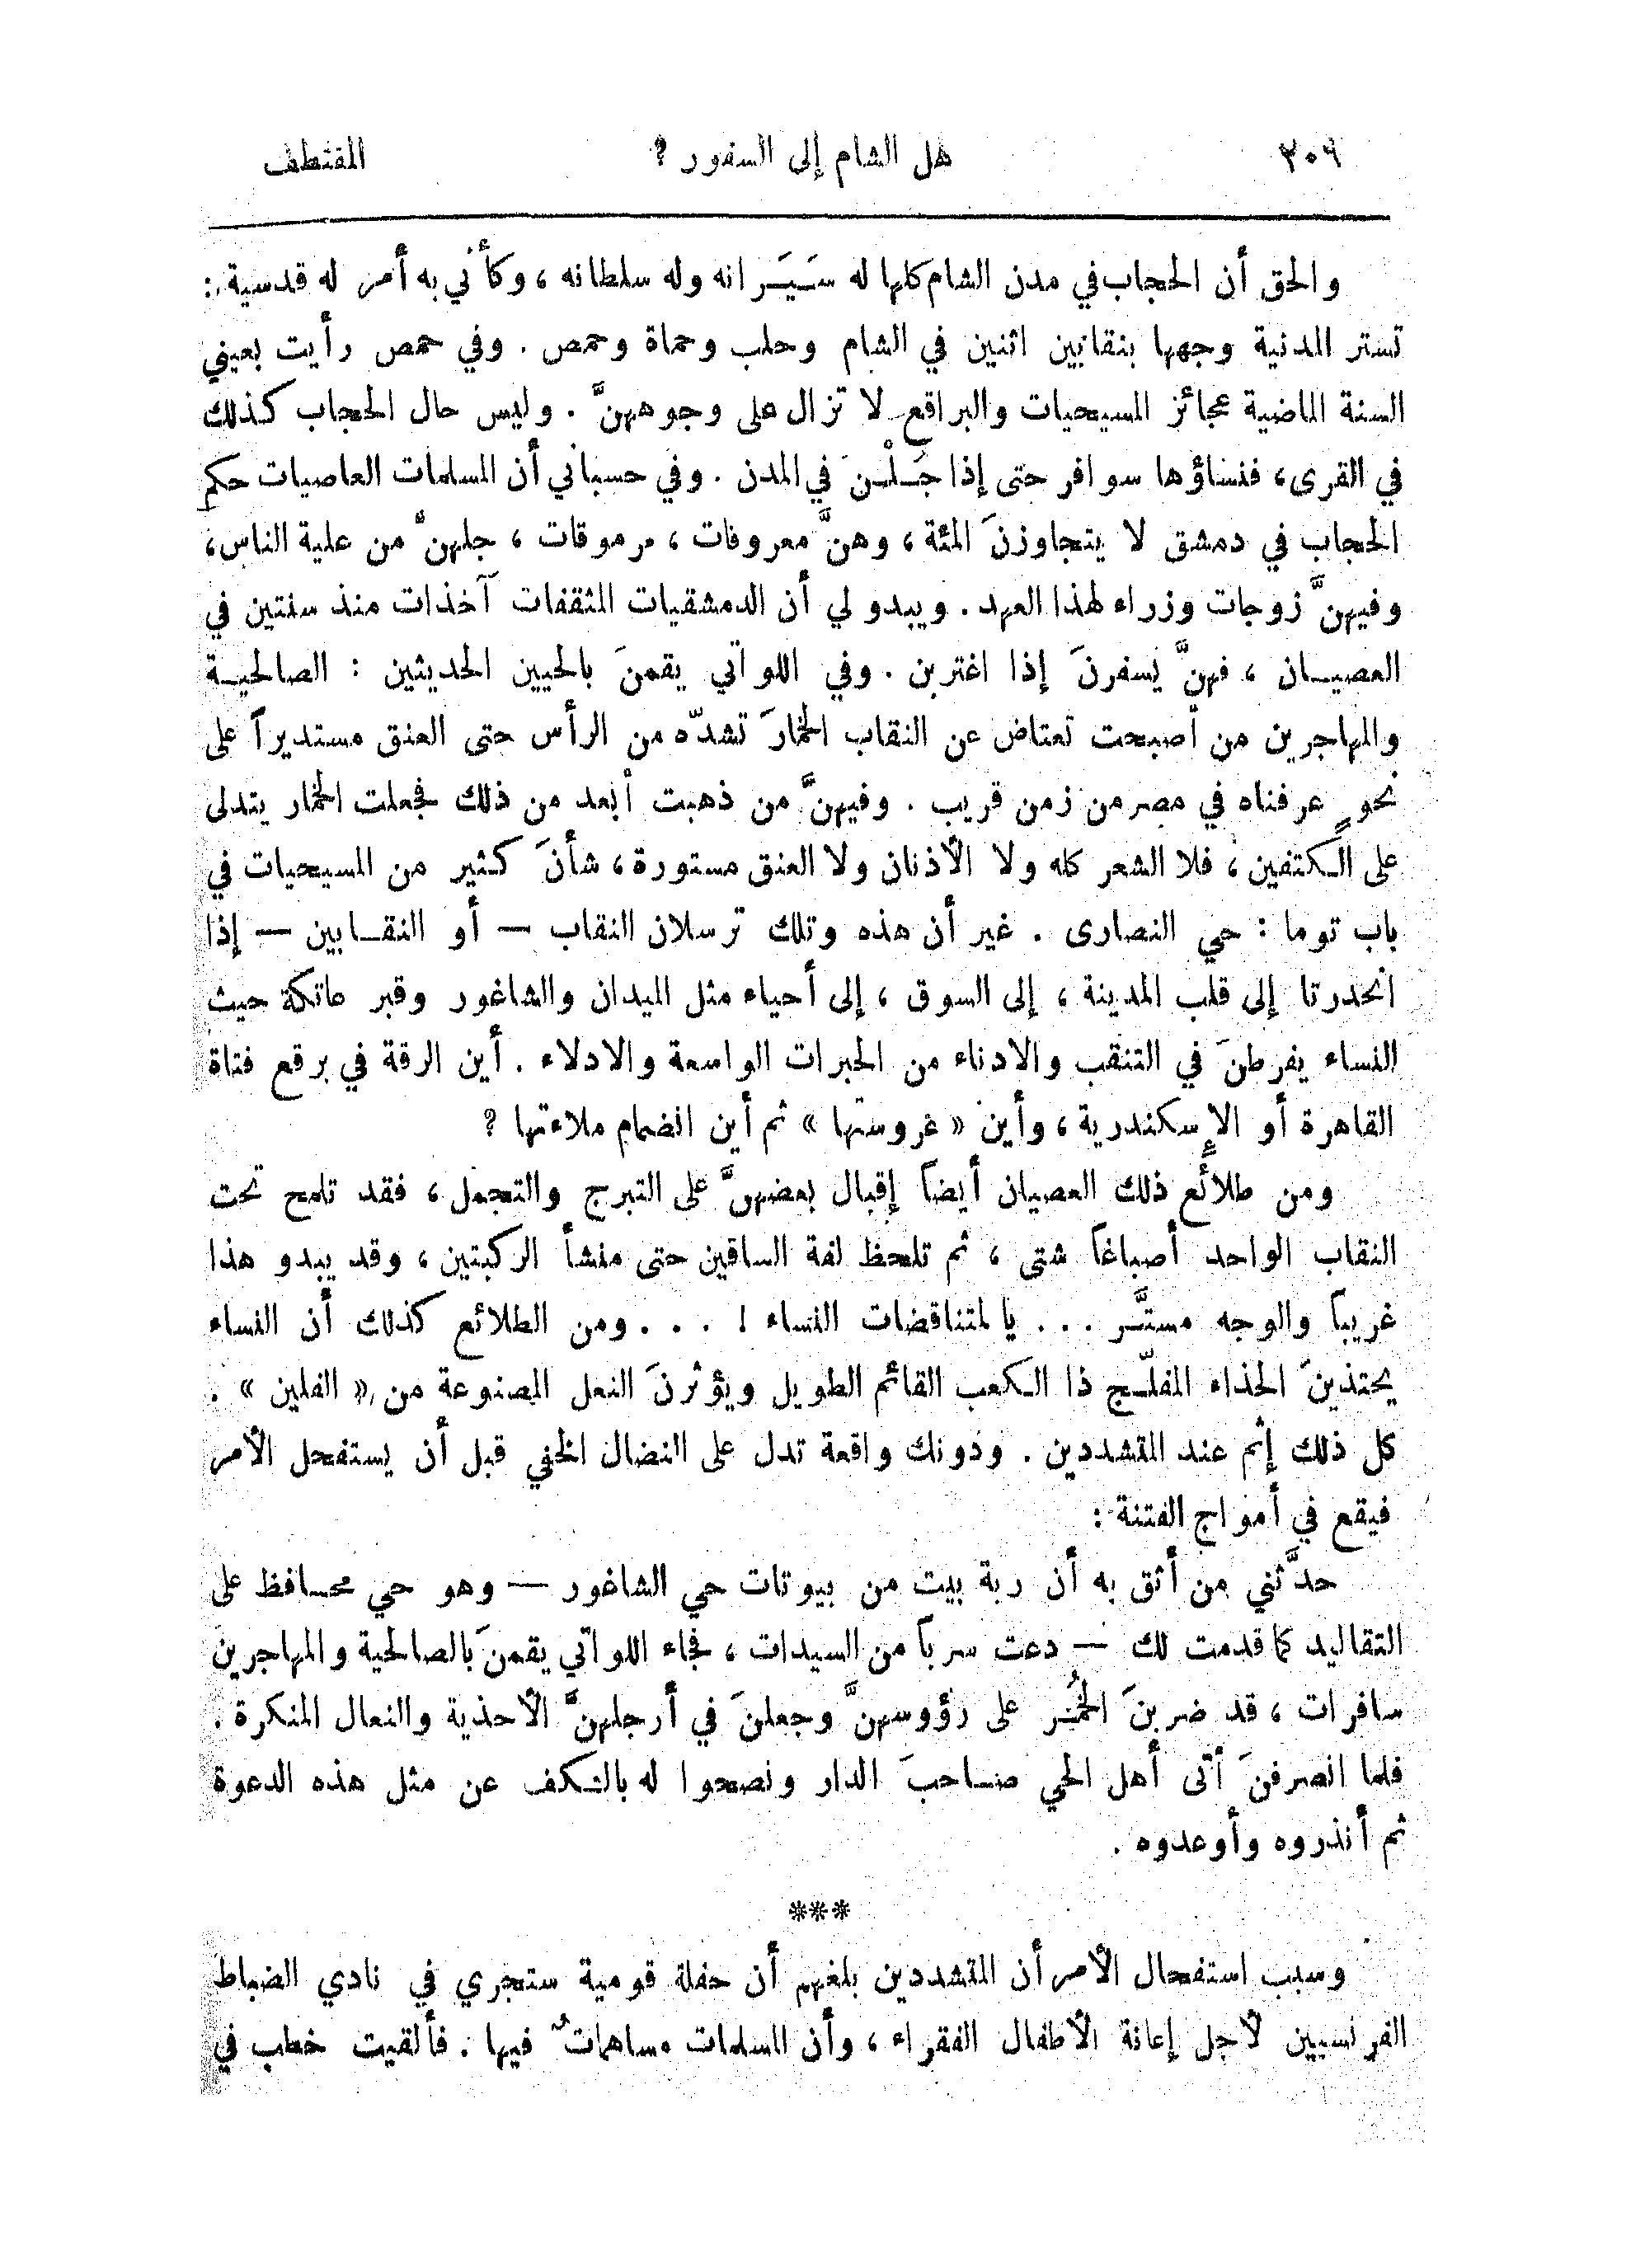 ٣٠٩ هل الشام إلى السفور ? المقتطف
والحق أن الحجاب في مدن الشام كلها له سَيَـرانه وله سلطانه ، وكأني به أمر له قدسية :
تستر المدنية وجهها بنقابين اثنين في الشام وحلب وحماة وحمص . وفي حمص رأيت بعيني
السنة الماضية عجائز المسيحيات والبراقع لا تزال على وجوههنَّ . وليس حال الحجاب كذلك
في القرى ، فنساؤها سوافر حتى إذا جَـلْـنَ في المدن . وفي حسباني أن المسلمات العاصيات حكم
الحجاب في دمشق لا يتجاوزنَ المئة ، وهنَّ معروفات ، مرموقات ، جلهنَّ من علية الناس ،
وفيهنَّ زوجات وزراء لهذا العهد . ويبدو لي أن الدمشقيات المثقفات آخذات منذ سنتين في
العصيـان ، فهنَّ يَسفرنَ إذا اغتربن . وفي اللواتي يقمنَ بالحيين الحديثين : الصالحيـة
والمهاجرين من أصبحت تعتاض عن النقاب الخمارَ تشدّه من الرأس حتى العنق مستديراً على
نحوٍ عرفناه في مصر من زمن قريب . وفيهنَّ من ذهبت أبعد من ذلك فجعلت الخمار يتدلى
على الكتفين ، فلا الشعر كله ولا الأذنان ولا العنق مستورة ، شأنَ كثير من المسيحيات في
باب توما : حي النصارى . غير أن هذه وتلك ترسلان النقاب — أو النقـابين — إذا
انحدرتا إلى قلب المدينة ، إلى السوق ، إلى أحياء مثل الميدان والشاغور وقبر عاتكة حيث
النساء يفرطنَ في التنقب والادناء من الحبرات الواسعة والادلاء . أين الرقة في برقع فتاة
القاهرة أو الإسكندرية ، وأين « غروستها » ثم أين انضمام ملاءتها ?
ومن طلائع ذلك العصيان أيضاً إقبال بعضهنَّ على التبرج والتجمل ، فقد تلمح تحت
النقاب الواحد أصباغاً شتى ، ثم تلحظ لفة الساقين حتى منشأ الركبتين ، وقد يبدو هذا
غريباً والوجه مستَّـر . . . يا لمتناقضات النساء ! . . . ومن الطلائع كذلك أن النساء
يحتذينَ الحذاء المفلّـج ذا الكعب القائم الطويل ويؤثرنَ النعل المصنوعة من « الفلين » .
كل ذلك إثم عند المتشددين . ودونك واقعة تدل على النضال الخفي قبل أن يستفحل الأمر
فيقع في أمواج الفتنة :
حدَّثني من أثق به أن ربة بيت من بيوتات حي الشاغور — وهو حي محـافظ على
التقاليد كما قدمت لك — دعت سرباً من السيدات ، فجاء اللواتي يقمنَ بالصالحية والمهاجرين
سافرات ، قد ضربنَ الخُمُـر على رؤوسهنَّ وجعلنَ في أرجلهنَّ الأحذية والنعال المنكرة .
فلما انصرفنَ أتى أهل الحي صـاحبَ الدار ونصحوا له بالكف عن مثل هذه الدعوة
ثم أنذروه وأوعدوه .
***
وسبب استفحال الأمر أن المتشددين بلغهم أن حفلة قومية ستجري في نادي الضباط
الفرنسيين لأجل إعانة الأطفال الفقراء ، وأن المسلمات مساهماتٌ فيها . فألقيت خطب في